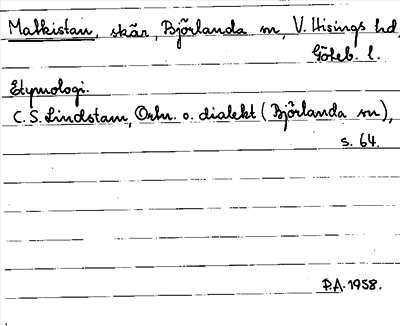 Malkistan, skär, Björlanda sn, V. Hisings hd,
Göteb. l.
Etymologi.
C. S. Lindstam, Ortn. o. dialekt (Björlanda sn),
s. 64.
P.A. 1958.